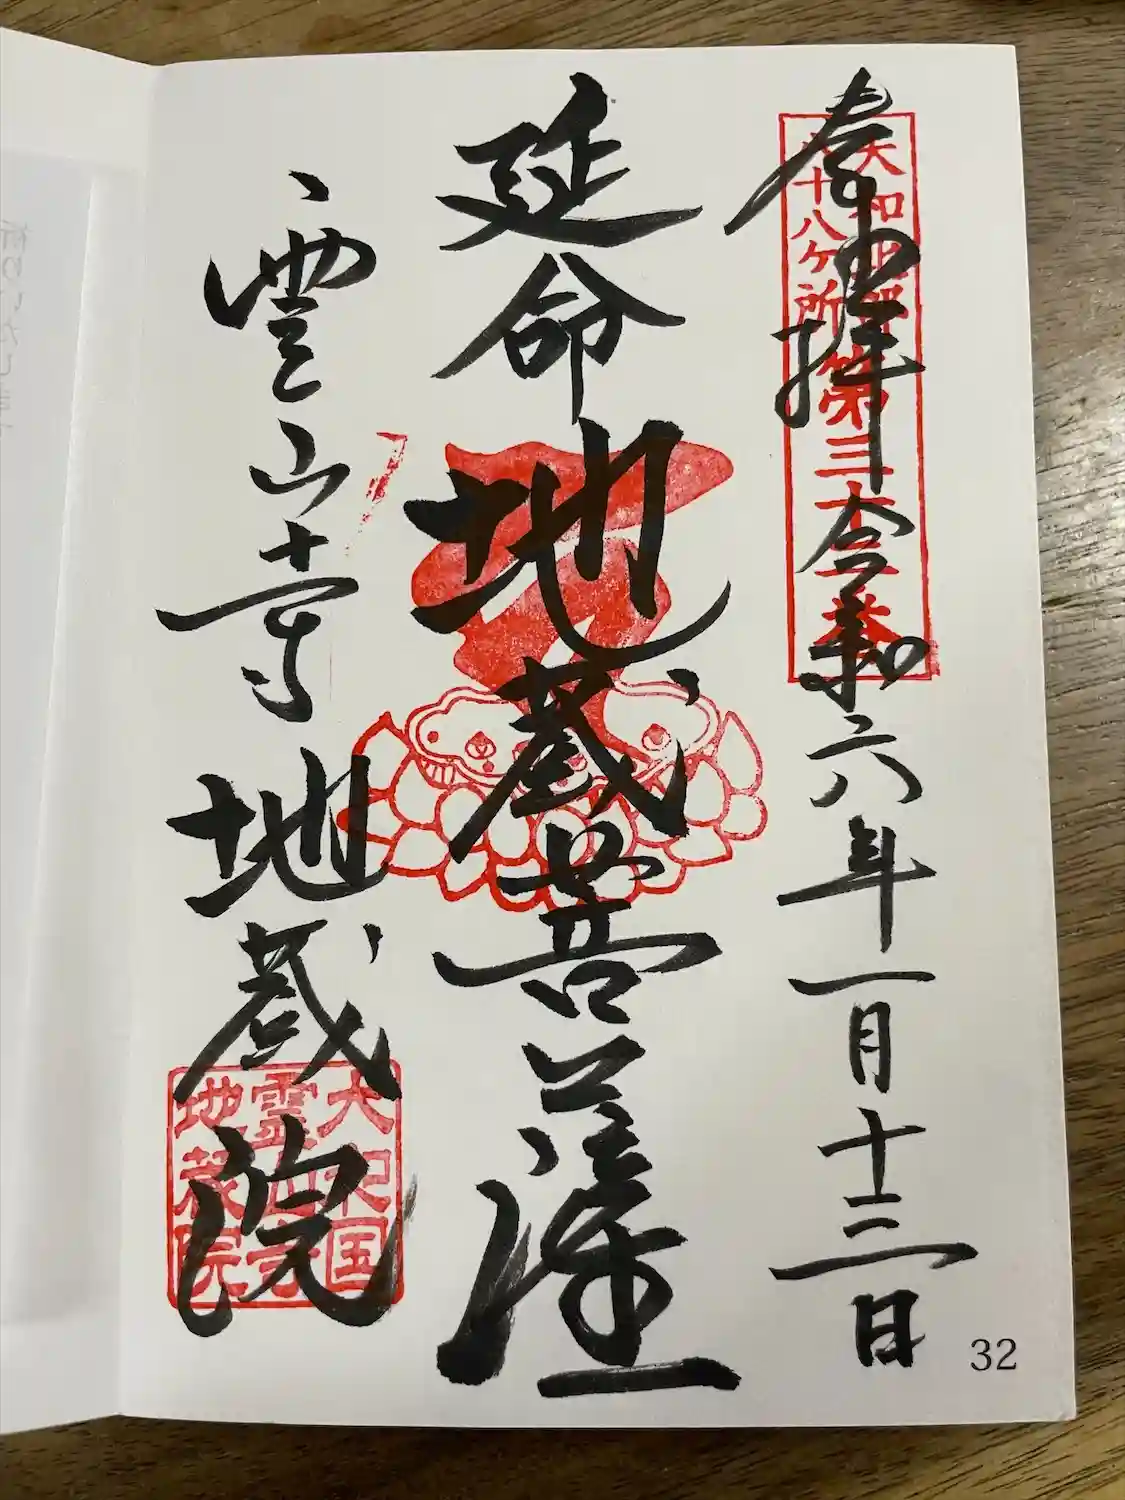 奉拝
大和北部
八十八ヶ所
第三十二番
令和六年一月十三日
延命地蔵菩薩
霊山寺地蔵院
大和国
霊山寺
地蔵院
32